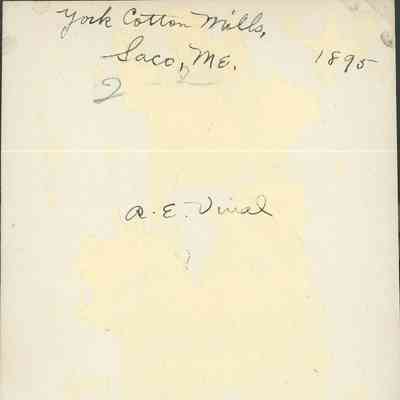 York Cotton Mills,
Saco, Me. 1895
2
A. E. Vinal